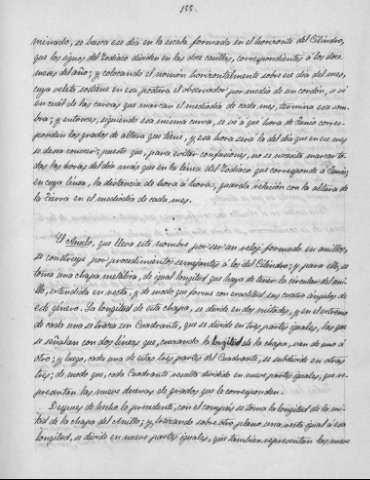 155.
minado, se busca ese día en la escala formada en el horizonte del Cilindro,
que los signos del Zodiaco dividen en las doce casillas, correspondientes á los doce
meses del año; y colocando el nomón horizontalmente sobre ese día del mes,
cuyo relote sostiene en esa postura el observador por medio de un cordon, se vé
en cuál de las curvas que marcan el mediodía de cada mes, termina esa som-
bra; y entonces, siguiendo esa misma curva, se vé á qué hora de Cancer corres-
ponden los grados de altura que tiene, y esa hora será la del día que en ese mes
se desea conocer; puesto que, para evitar confusiones, no se necesita marcar to-
das las horas del día más que en la línea del Zodiaco que corresponde á Cancer,
en cuya línea, la distancia de hora á hora, guarda relación con la altura de
la Tierra en el mediodía de cada mes.
El Anillo, que lleva este nombre por ser un reloj formado en anillo,
se construye por procedimientos semejantes á los del Cilindro; y para ello, se
toma una chapa metálica, de igual longitud que haya de tener la circunf. del ani-
llo, extendida en recta, y de modo que forme con exactitud sus cuatro ángulos de
este género. La longitud de esta chapa, se divide en dos mitades, y en el extremo
de cada una se traza un Cuadrante, que se divide en tres partes iguales, las que
se señalan con dos líneas que, cruzando la longitud de la chapa, van de uno á
otro; y luego, cada una de estas tres partes del Cuadrante, se subdivide en otras
tres; de modo que, cada Cuadrante resulta dividido en nueve partes iguales, que re-
presentan las nueve decenas de grados que le corresponden.
Despues de hecho lo precedente, con el compás se toma la longitud de la mi-
tad de la chapa del Anillo; y, trazando sobre otro plano una recta igual á esa
longitud, se divide en nueve partes iguales, que tambien representan las nueve